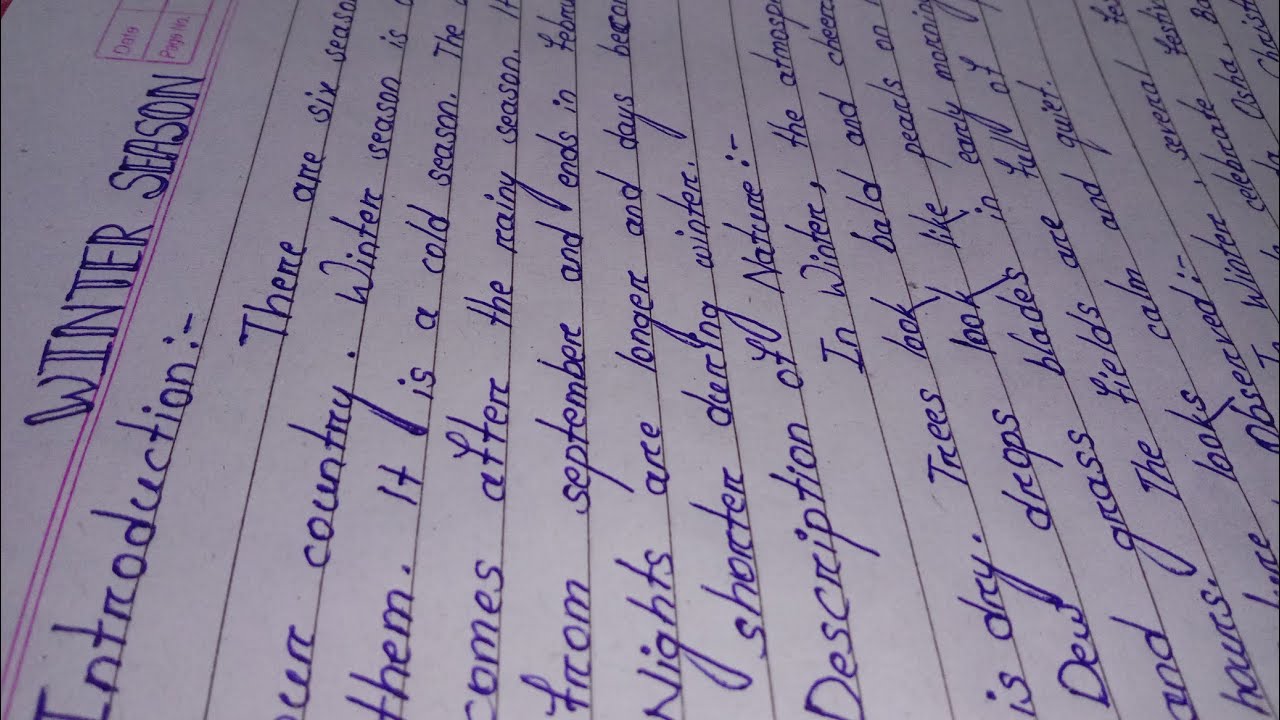 Date
Page No.
WINTER SEASON
Introduction:-
There are six season
our country. Winter season is
them. It is a cold season. The
comes after the rainy season. It
from september and ends in febru
Nights are longer and days becom
shorter during winter.
Description of Nature:-
In Winter, the atmosp
is dry. Trees look bald and cheer
Dew drops look like pearls on
and grass blades in early morning
The fields are full of
looks calm and quiet.
hours.
Observed:- several festiv
In Winter,
celebrate
Osha,
Christm